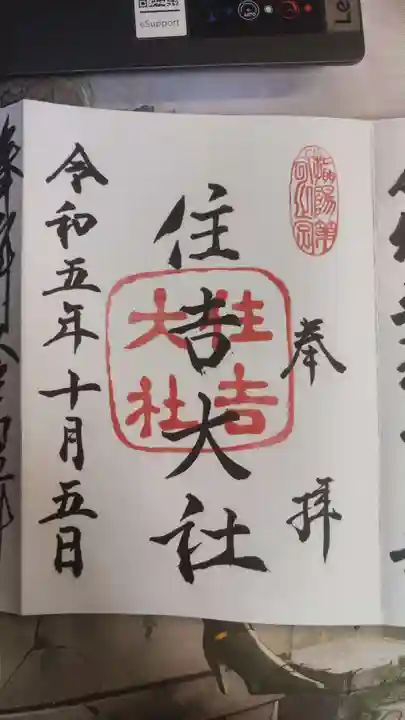 eSupport
Le
奉拝
住吉大社
住吉大社
令和五年十月五日